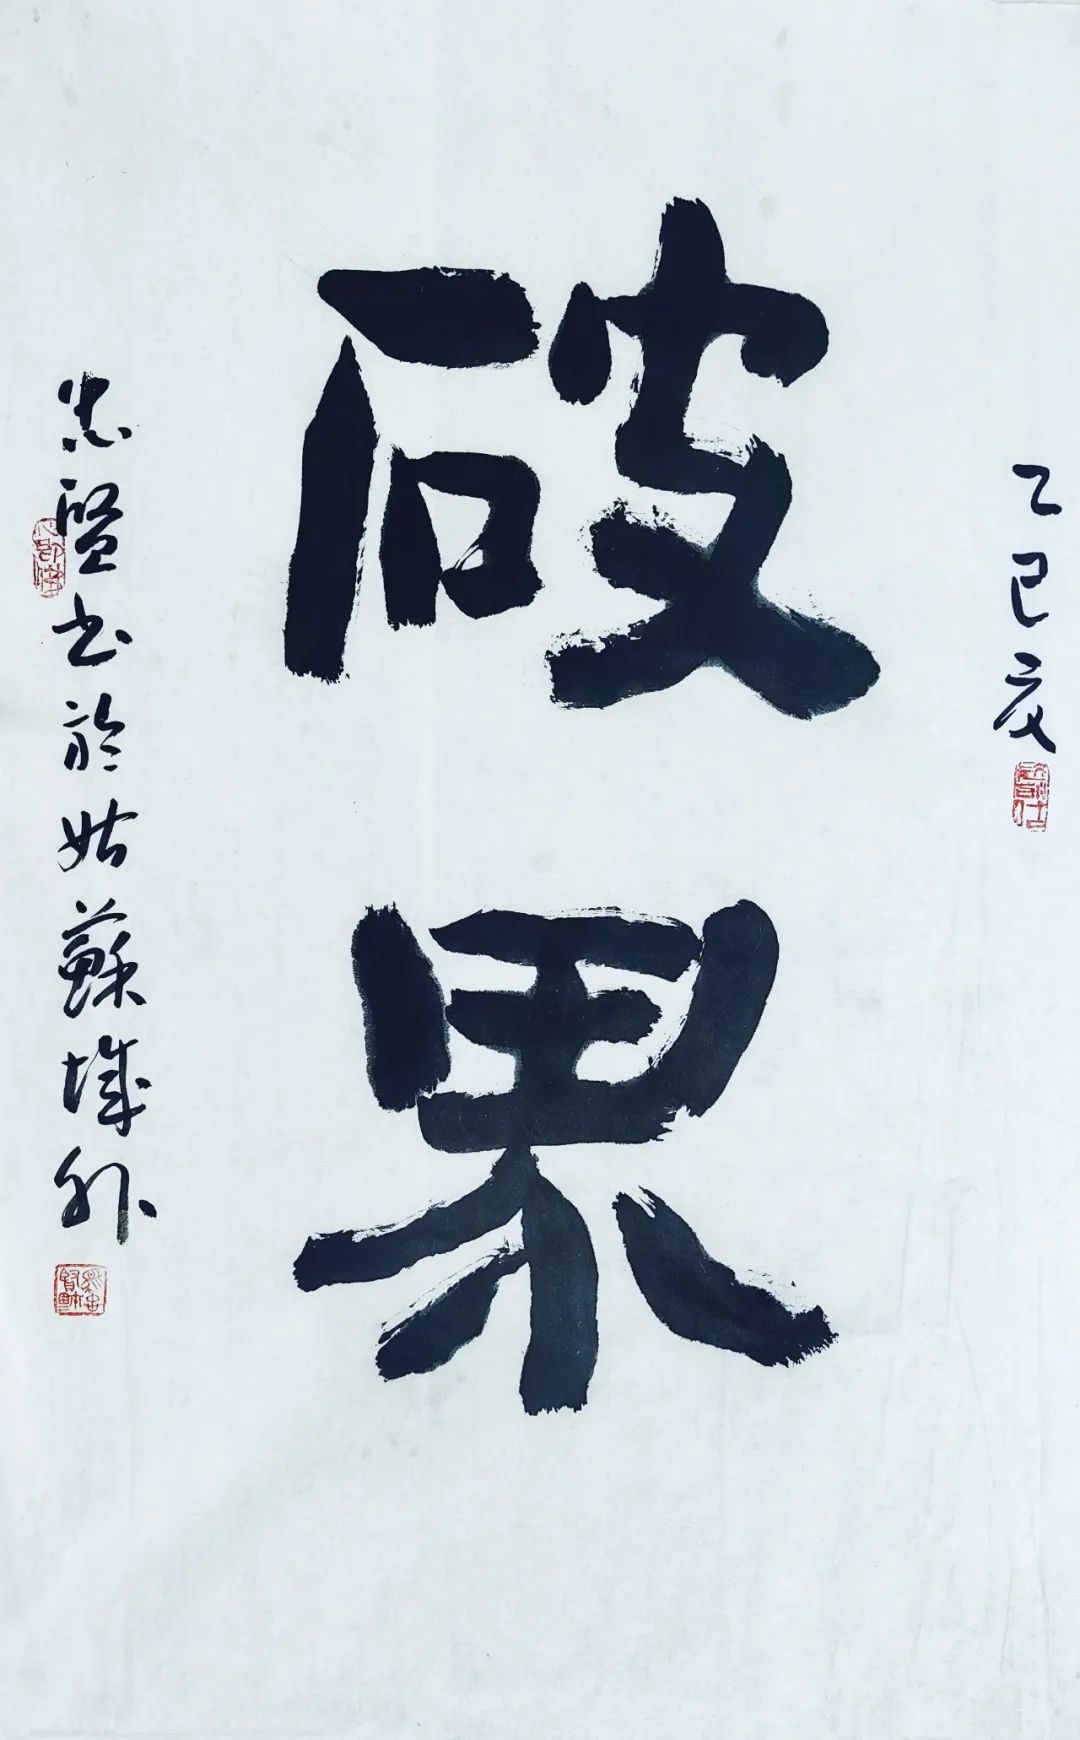 乙巳夏
破果
忠賢书於姑蘇城外